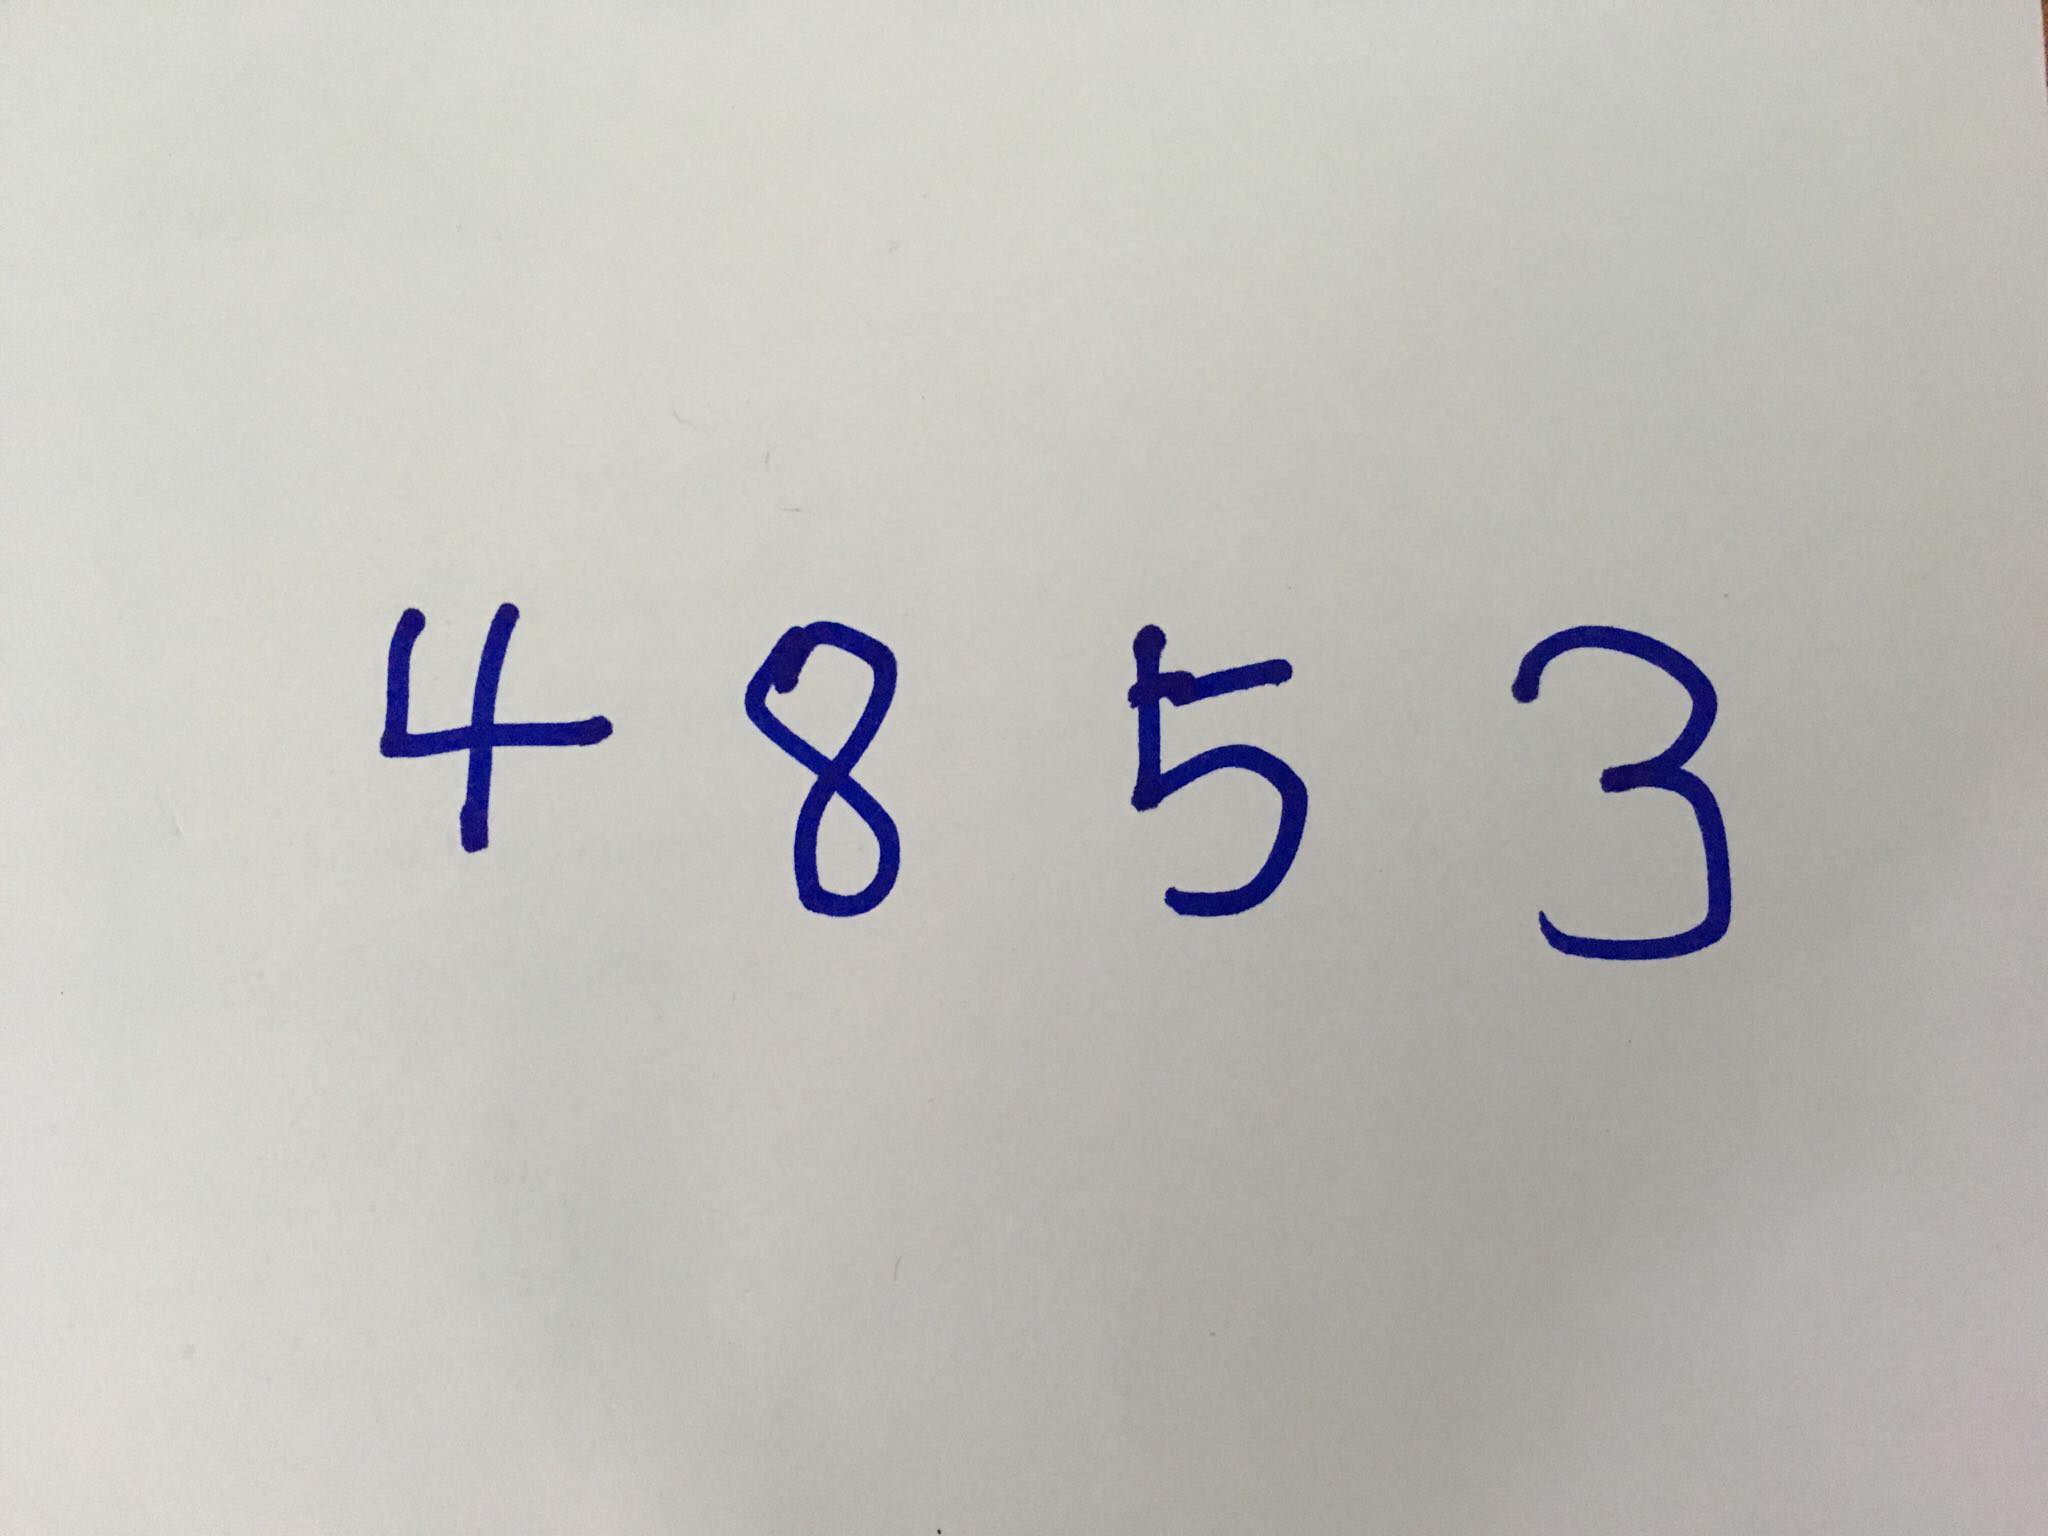 4 8 5 3